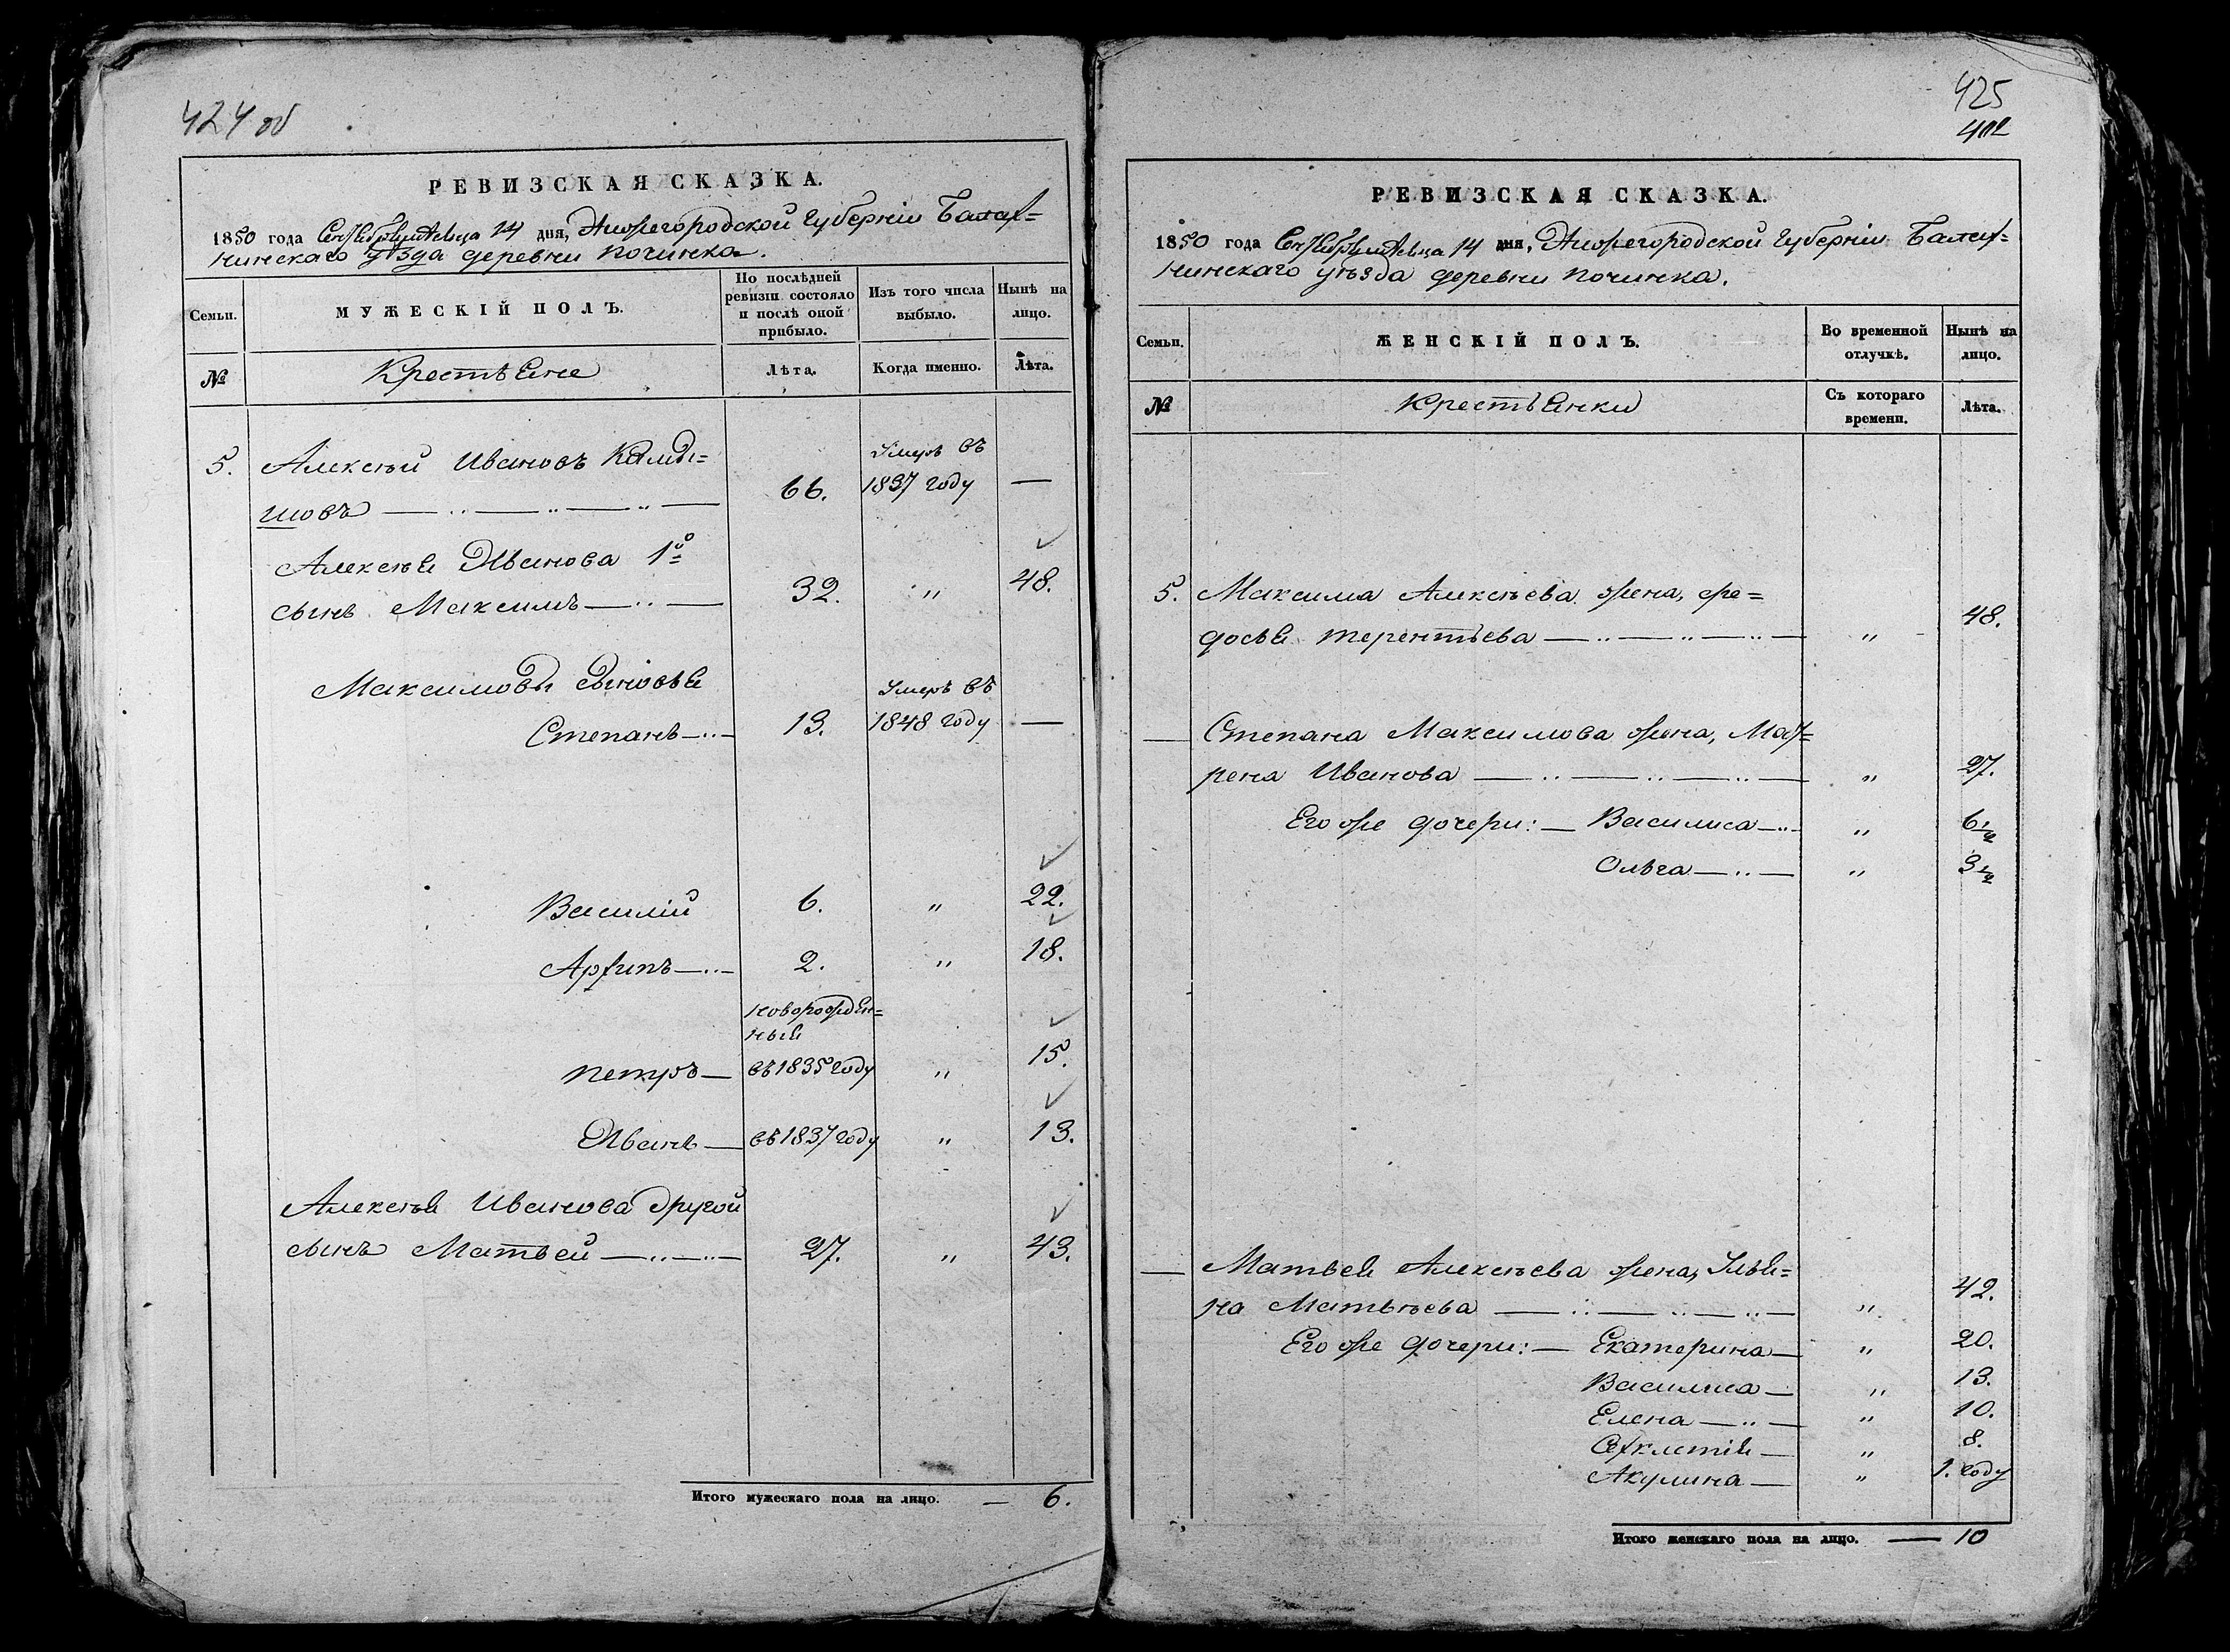 424 об
РЕВИЗСКАЯ СКАЗКА.
1850 года Сентября месяца 14 дня, Нижегородской Губерніи Балах=
нинскаго уѣзда деревни Починка.
Семьи.
МУЖЕСКІЙ ПОЛЪ.
По послѣдней
ревизіи состояло
и послѣ оной
прибыло.
Изъ того числа
выбыло.
Нынѣ на
лицо.
№
Крестьяне
Лѣта.
Когда именно.
Лѣта.
5. Алексѣй Ивановъ
шовъ — „ — „ — „ — 66. Умеръ въ
1837 году —
Алексѣя Иванова 1й
сынъ Максимъ — „ — 32. „ 48.
Максимовы сыновья
Степанъ — „ — 13. Умеръ въ
1848 году —
Василій 6. „ 22.
Архипъ — „ — 2. „ 18.
новорожден=
ный
Петръ — въ 1835 году „ 15.
Иванъ — въ 1837 году „ 13.
Алексѣя Иванова другой
сынъ Матвей — „ — „ — 27. „ 43.
Итого мужескаго пола на лицо. — 6.
425
402
РЕВИЗСКАЯ СКАЗКА.
1850 года Сентября месяца 14 дня, Нижегородской Губерніи Балах=
нинскаго уѣзда деревни Починка.
Семьи.
ЖЕНСКІЙ ПОЛЪ.
Во временной
отлучкѣ.
Нынѣ на
лицо.
№
Крестьянки
Съ котораго
времени.
Лѣта.
5. Максима Алексѣева жена, Фе=
досья Терентьева — „ — „ — „ — „ 48.
— Степана Максимова жена, Мат=
рена Иванова — „ — „ — „ — „ 27.
Его же дочери: — Василиса — „ — „ 6½
Ольга — „ — „ 3½
— Матвея Алексѣева жена, Улья=
на Матвѣева — „ — „ — „ — „ 42.
Его же дочери: — Екатерина — „ 20.
Василиса — „ 13.
Елена — „ — „ 10.
Феклетія — „ 8.
Акулина — „ 1. году
Итого женскаго пола на лицо. — 10